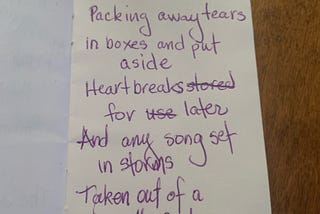 Packing away tears
in boxes and put
aside
Heartbreaks stored
for use later
And any song set
in storms
Taken out of a